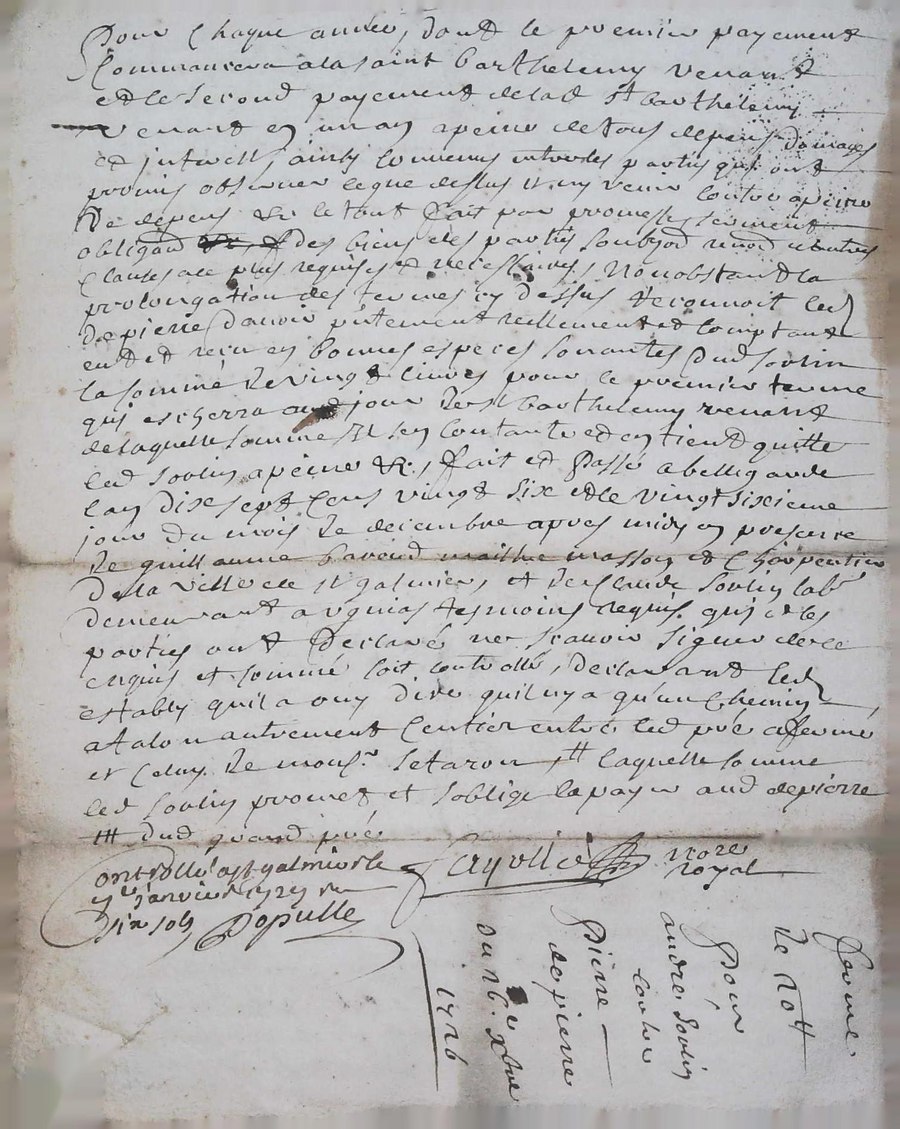 pour Chaque année, dont le premier payement
Commancera a la saint barthelemy venant
et le second payement de lad St barthelemy
venant en un an a peine de tous depens domages
et interest, ainsy convenus entre les parties qui ont
promis observer ce que dessus et ny venir contre a peine
de depens &c le tout fait par promesse serment
obligaon des biens des parties soubzon renon et autres
Clauses ace plus requises et necessaires, Nonobstant la
prolongation des termes cy dessus reconnoit led
depierre d'avoir presentement reellement et Comptant
eu et reçu en bonnes especes sonnantes dud Soulin
la somme de vingt livres pour le premier terme
qui escherra aud jour de St barthelemy venant
de laquelle somme Il s'en contante et en tient quitte
led Soulin a peine &c, fait et passé a belligarde
lan dix sept Cens vingt six et le vingt sixieme
jour du mois de decembre apres midy en presence
de guillaume maitre masson et Charpentier
de la ville de St galmier, et de Claude Soulin labr
demeurant a tesmoins requis qui et les
parties ont declaré ne scavoir signer de ce
enquis et sommé soit controllé, declarant led
estably quil a ouy dire quil ny a qu'un Chemin
a talon autrement Centier entre led pré affermé
et Celuy de monsr Setaron, # laquelle somme
led Soulin promet et s'oblige la payer aud depierre
# dud grand pré
notre royal
Controllé a St galmier le
janvier 1727 r
six sols Populle
ferme
de 20 tt
Pour
andre Soulin
contre
Pierre
depierre
du 26e xbre
1726